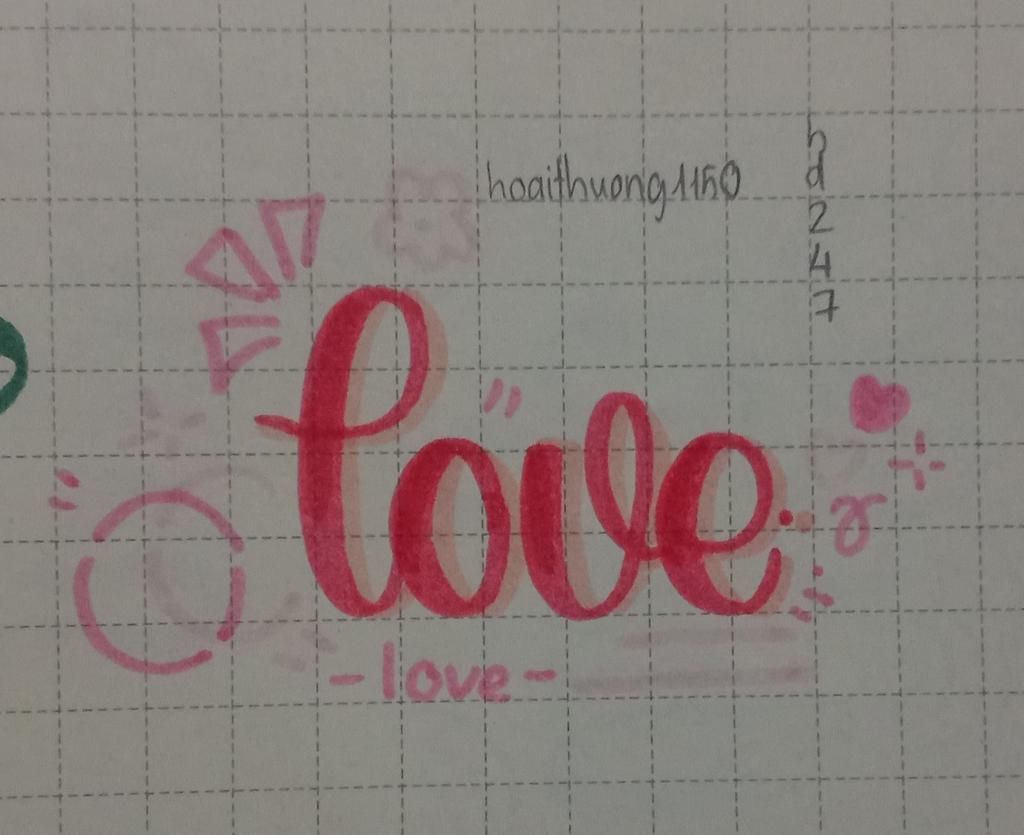 hoaithuong1150
h
d
2
4
7
love
-love-